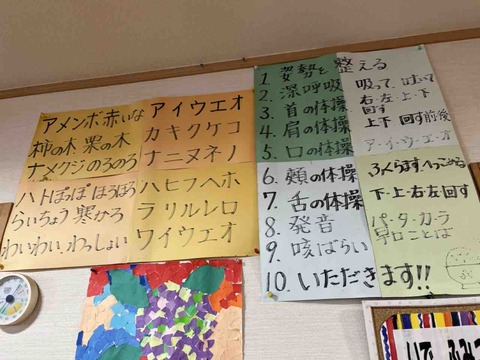 アメンボ赤いな アイウエオ
柿の木栗の木 カキクケコ
ナメクジのろのろ ナニヌネノ
ハトぽっぽ ほろほろ ハヒフヘホ
らいちょう寒かろ ラリルレロ
わいわい わっしょい ワイウエオ
1. 姿勢を整える
2. 深呼吸 吸って、はいて
3. 首の体操 右・左・上・下 回す
4. 肩の体操 上下 回す前後
5. 口の体操 ア・イ・ウ・エ・オ
6. 頬の体操 ふくらます、へっこめる
7. 舌の体操 下・上・右左回す
8. 発音 パ・タ・カ・ラ 早口ことば
9. 咳ばらい
10. いただきます!!